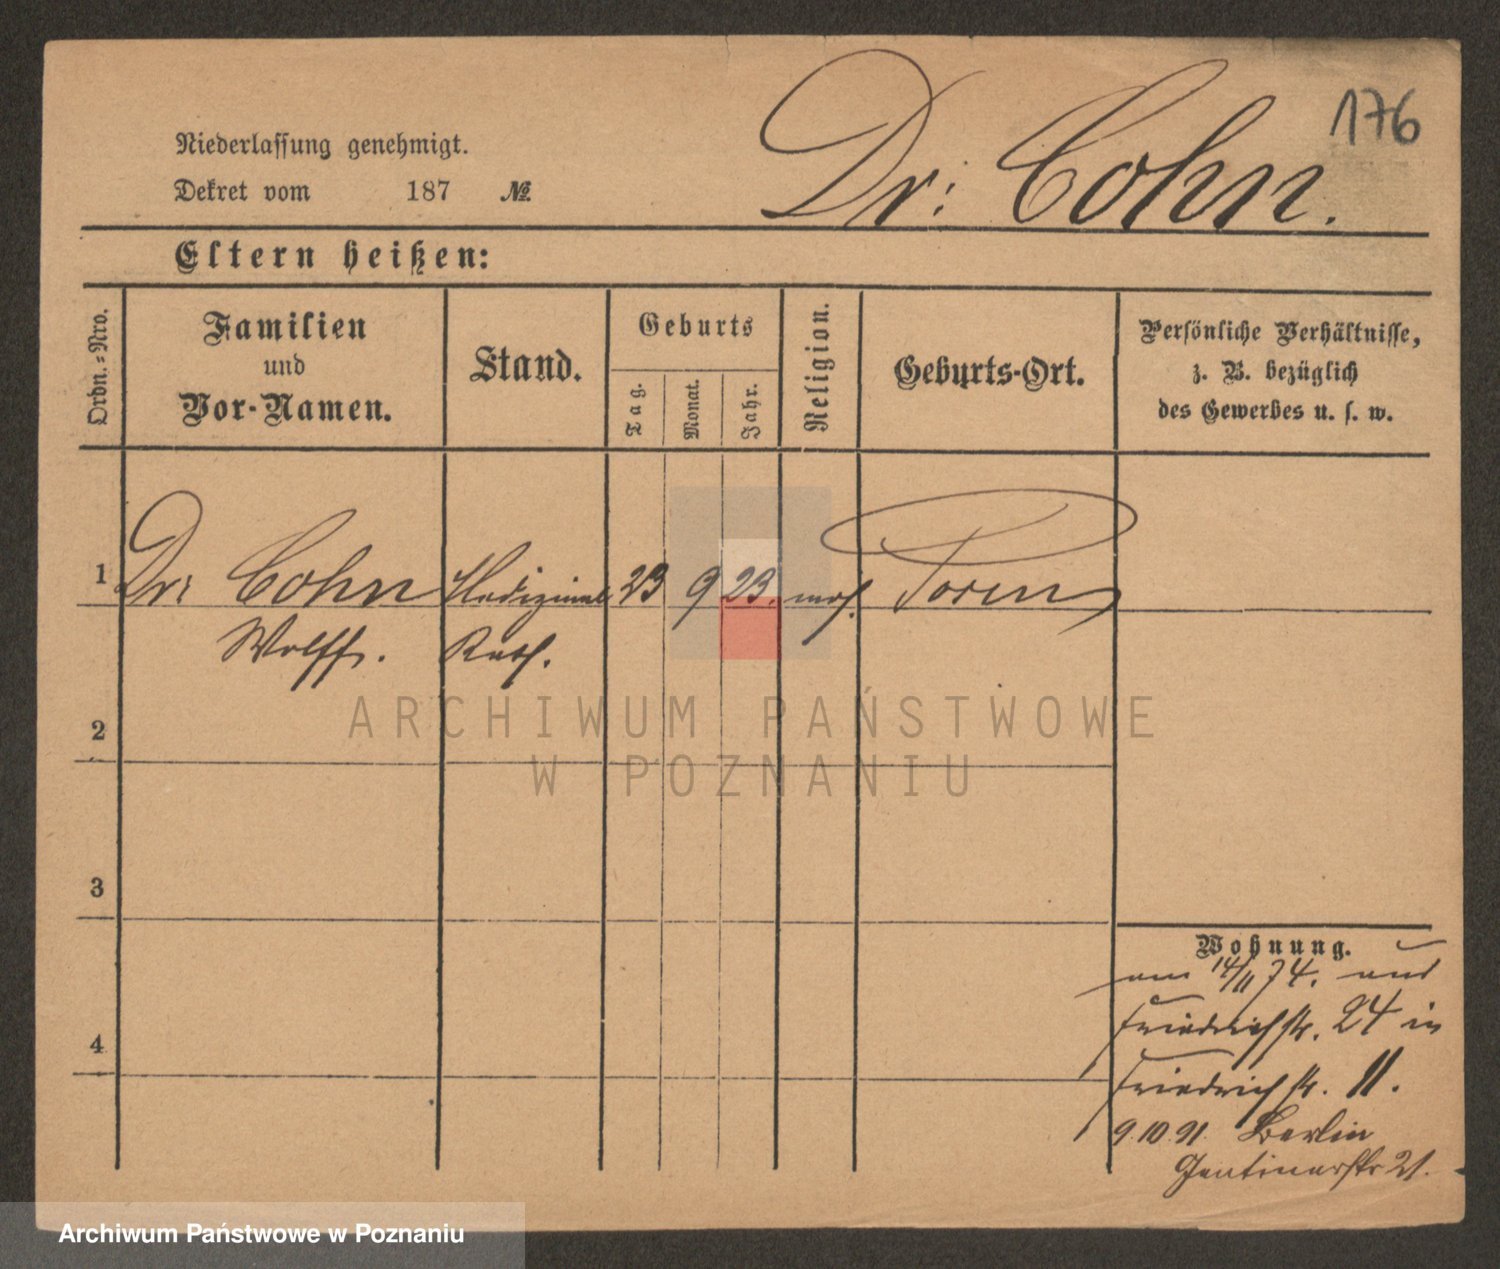 176
Dr: Cohn.
Niederlassung genehmigt.
Dekret vom 187 №
Eltern heißen:
Ordn.-Nro.
Familien
und
Vor-Namen.
Stand.
Geburts
Tag.
Monat.
Jahr.
Religion.
Geburts-Ort.
Persönliche Verhältnisse,
z. B. bezüglich
des Gewerbes u. s. w.
1 Dr: Cohn Medizinal 23 9 23. mos. Posen
Wolff. Rath.
2
3
4
Wohnung.
am 14/11 74. aus
Friedrichstr. 24 in
Friedrichstr. 11.
9.10.91. Berlin
Genthinerstr 21.
ARCHIWUM PAŃSTWOWE
W POZNANIU
Archiwum Państwowe w Poznaniu